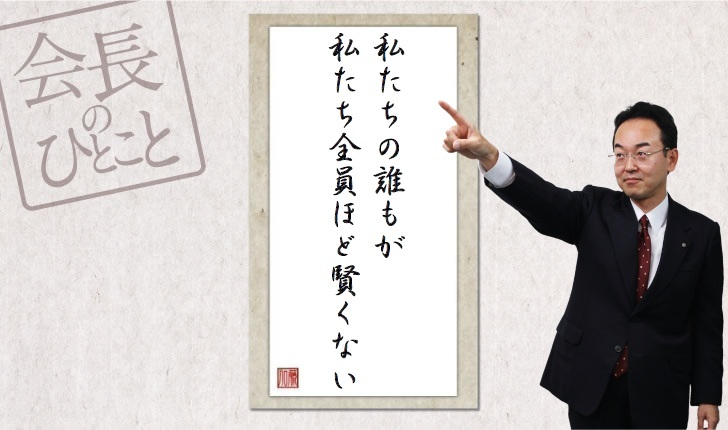 会長
の
ひとこと
私たちの誰もが
私たち全員ほど賢くない